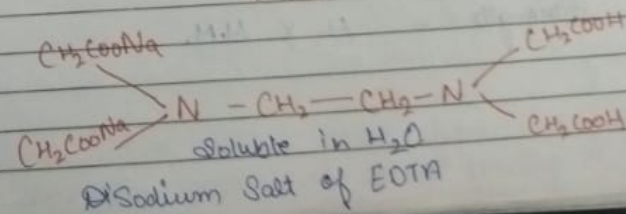 CH₂COONa CH₂COOH
N - CH₂ — CH₂ - N
CH₂COONa CH₂COOH
Soluble in H₂O
DiSodium Salt of EDTA